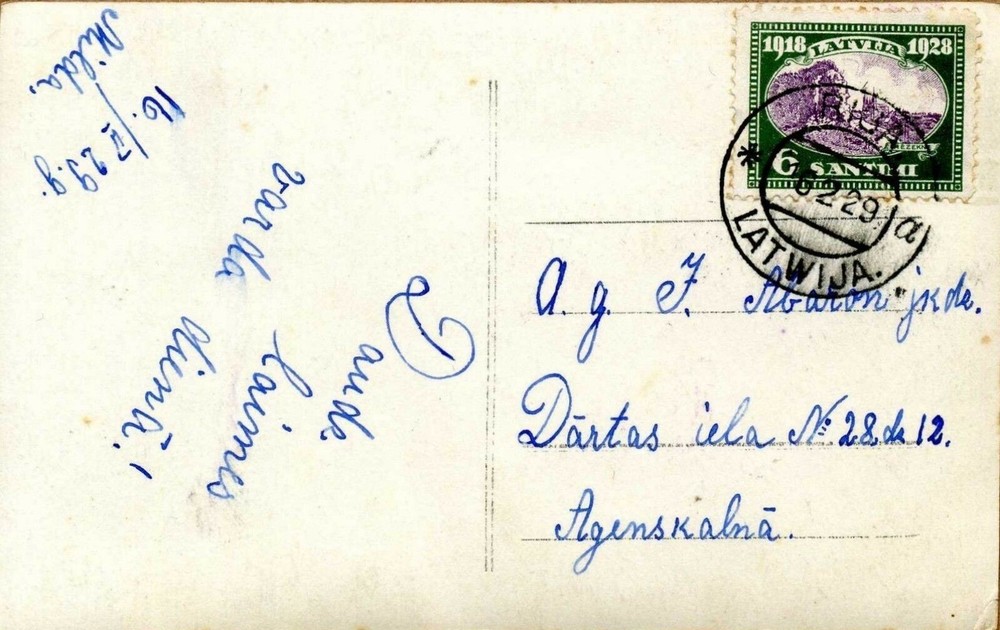 Daudz
laimes
varda dienā!
16./II 29.g.
Milda.
1918 LATVIJA 1928
RĒZEKNE
6 SANTIMI
RIGA
16 2 29
a
LATWIJA.
A. g. J. Abaron jkdz.
Dārtas iela № 28. dz 12.
Agenskalnā.